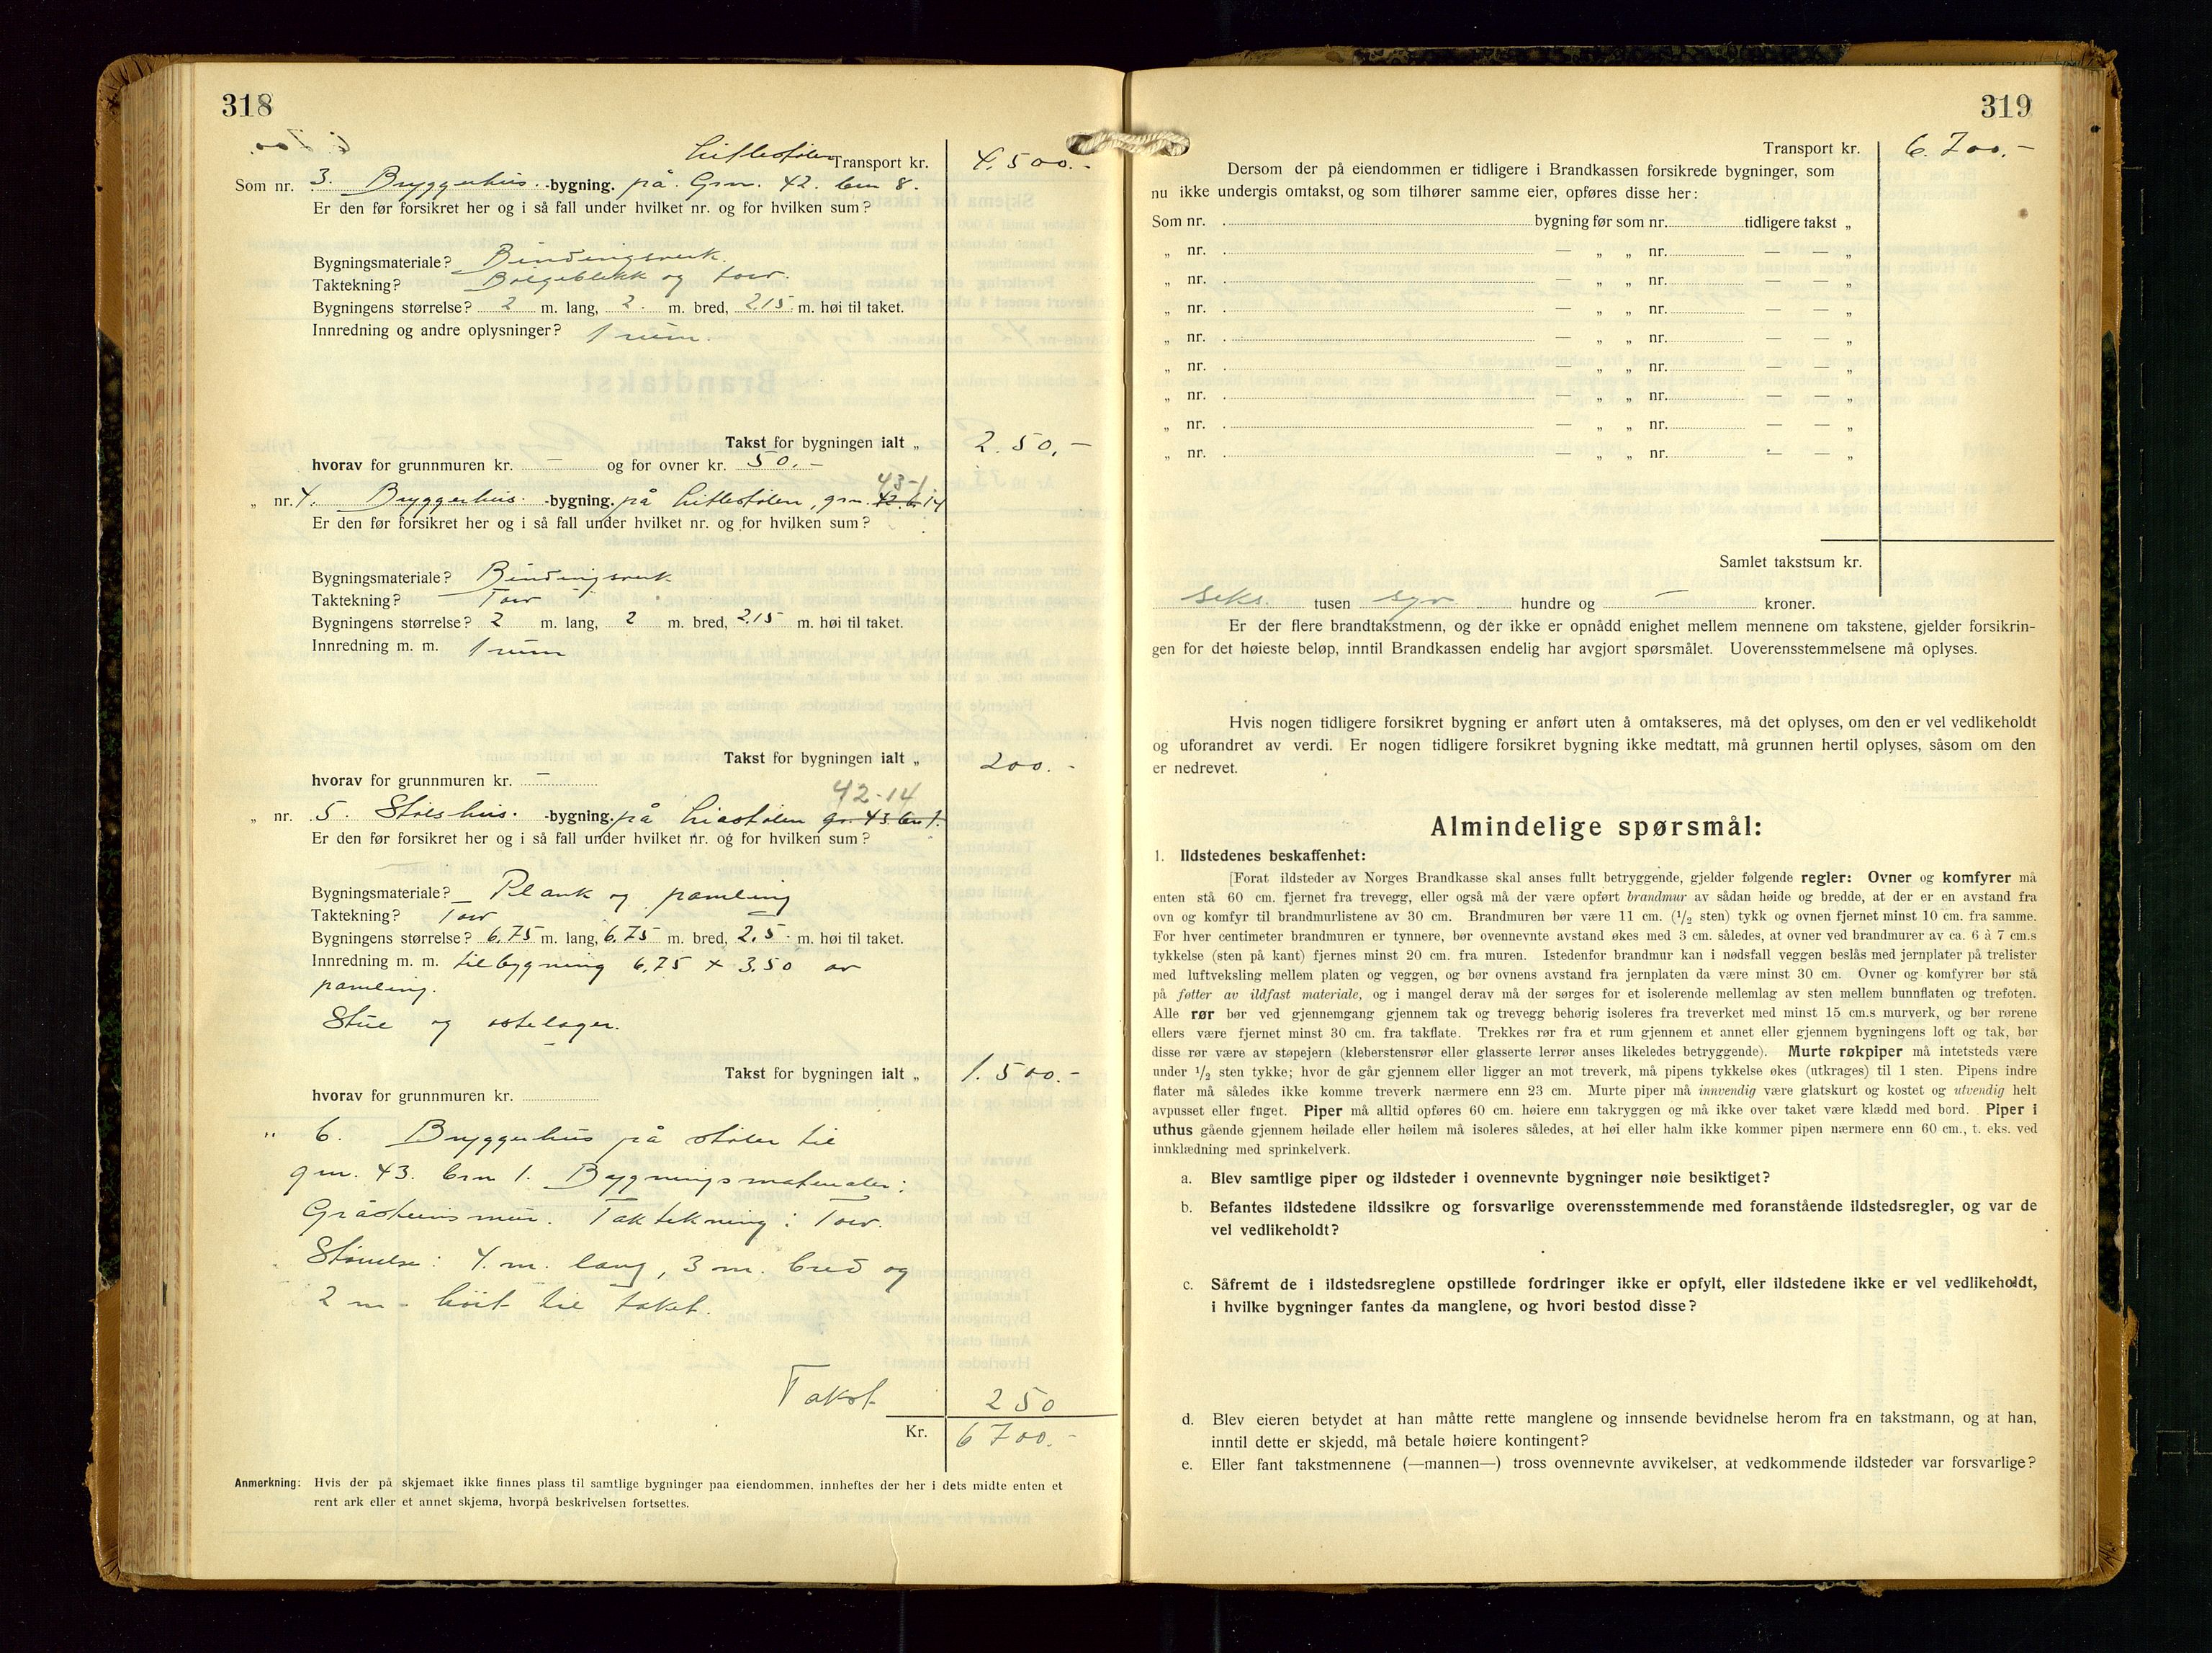 318
Littestølen Transport kr. 4.500.-
Som nr. 3. Bryggerhus. -bygning. på. Grn. 42. brn 8.
Er den før forsikret her og i så fall under hvilket nr. og for hvilken sum?
Bygningsmateriale? Bindingsverk.
Taktekning? Bølgeblekk og torv.
Bygningens størrelse? 2 m. lang, 2. m. bred, 2,15 m. høi til taket.
Innredning og andre oplysninger? 1 rum.
Takst for bygningen ialt „ 250,-
hvorav for grunnmuren kr. — og for ovner kr. 50.-
43-1
„ nr. 4. Bryggerhus. -bygning. på Littestølen, grn. 42. br 14
Er den før forsikret her og i så fall under hvilket nr. og for hvilken sum?
Bygningsmateriale? Bindingsverk
Taktekning? Torv
Bygningens størrelse? 2 m. lang, 2 m. bred, 2,15 m. høi til taket.
Innredning m. m. 1 rum
Takst for bygningen ialt „ 200.-
hvorav for grunnmuren kr. —
42-14
„ nr. 5. Stølshus. -bygning. på Liastølen gr. 43 br 1.
Er den før forsikret her og i så fall under hvilket nr. og for hvilken sum?
Bygningsmateriale? Plank og paneling
Taktekning? Torv
Bygningens størrelse? 6,75 m. lang, 6,75 m. bred, 2,5 m. høi til taket.
Innredning m. m. tilbygning 6,75 x 3,50 av
paneling.
Stue og ostelager.
Takst for bygningen ialt „ 1.500.-
hvorav for grunnmuren kr.
„ 6. Bryggerhus på stølen til
grn. 43. brn 1. Bygningsmaterialer:
Gråsteinsmur. Taktekning: Torv.
Størrelse: 4. m. lang, 3 m. bred og
2 m - høit til taket.
Takst 250
Kr. 6700.-
Anmerkning: Hvis der på skjemaet ikke finnes plass til samtlige bygninger paa eiendommen, innheftes der her i dets midte enten et
rent ark eller et annet skjema, hvorpå beskrivelsen fortsettes.
319
Transport kr. 6.700.-
Dersom der på eiendommen er tidligere i Brandkassen forsikrede bygninger, som
nu ikke undergis omtakst, og som tilhører samme eier, opføres disse her:
Som nr. bygning før som nr. tidligere takst „
„ nr. — „ „ nr. — — „
„ nr. — „ „ nr. — — „
„ nr. — „ „ nr. — — „
„ nr. — „ „ nr. — — „
„ nr. — „ „ nr. — — „
„ nr. — „ „ nr. — — „
„ nr. — „ „ nr. — — „
„ nr. — „ „ nr. — — „
Samlet takstsum kr.
seks. tusen syv hundre og — kroner.
Er der flere brandtakstmenn, og der ikke er opnådd enighet mellem mennene om takstene, gjelder forsikrin-
gen for det høieste beløp, inntil Brandkassen endelig har avgjort spørsmålet. Uoverensstemmelsene må oplyses.
Hvis nogen tidligere forsikret bygning er anført uten å omtakseres, må det oplyses, om den er vel vedlikeholdt
og uforandret av verdi. Er nogen tidligere forsikret bygning ikke medtatt, må grunnen hertil oplyses, såsom om den
er nedrevet.
Almindelige spørsmål:
1. Ildstedenes beskaffenhet:
[Forat ildsteder av Norges Brandkasse skal anses fullt betryggende, gjelder følgende regler: Ovner og komfyrer må
enten stå 60 cm. fjernet fra trevegg, eller også må der være opført brandmur av sådan høide og bredde, at der er en avstand fra
ovn og komfyr til brandmurlistene av 30 cm. Brandmuren bør være 11 cm. (1/2 sten) tykk og ovnen fjernet minst 10 cm. fra samme.
For hver centimeter brandmuren er tynnere, bør ovennevnte avstand økes med 3 cm. således, at ovner ved brandmurer av ca. 6 à 7 cm.s
tykkelse (sten på kant) fjernes minst 20 cm. fra muren. Istedenfor brandmur kan i nødsfall veggen beslås med jernplater på trelister
med luftveksling mellem platen og veggen, og bør ovnens avstand fra jernplaten da være minst 30 cm. Ovner og komfyrer bør stå
på føtter av ildfast materiale, og i mangel derav må der sørges for et isolerende mellemlag av sten mellem bunnflaten og trefoten.
Alle rør bør ved gjennemgang gjennem tak og trevegg behørig isoleres fra treverket med minst 15 cm.s murverk, og bør rørene
ellers være fjernet minst 30 cm. fra takflate. Trekkes rør fra et rum gjennem et annet eller gjennem bygningens loft og tak, bør
disse rør være av støpejern (kleberstensrør eller glasserte lerrør anses likeledes betryggende). Murte røkpiper må intetsteds være
under 1/2 sten tykke; hvor de går gjennem eller ligger an mot treverk, må pipens tykkelse økes (utkrages) til 1 sten. Pipens indre
flater må således ikke komme treverk nærmere enn 23 cm. Murte piper må innvendig være glatskurt og kostet og utvendig helt
avpusset eller fuget. Piper må alltid opføres 60 cm. høiere enn takryggen og må ikke over taket være klædd med bord. Piper i
uthus gående gjennem høilade eller høilem må isoleres således, at høi eller halm ikke kommer pipen nærmere enn 60 cm., t. eks. ved
innklædning med sprinkelverk.
a. Blev samtlige piper og ildsteder i ovennevnte bygninger nøie besiktiget?
b. Befantes ildstedene ildssikre og forsvarlige overensstemmende med foranstående ildstedsregler, og var de
vel vedlikeholdt?
c. Såfremt de i ildstedsreglene opstillede fordringer ikke er opfylt, eller ildstedene ikke er vel vedlikeholdt,
i hvilke bygninger fantes da manglene, og hvori bestod disse?
d. Blev eieren betydet at han måtte rette manglene og innsende bevidnelse herom fra en takstmann, og at han,
inntil dette er skjedd, må betale høiere kontingent?
e. Eller fant takstmennene (—mannen—) tross ovennevnte avvikelser, at vedkommende ildsteder var forsvarlige?